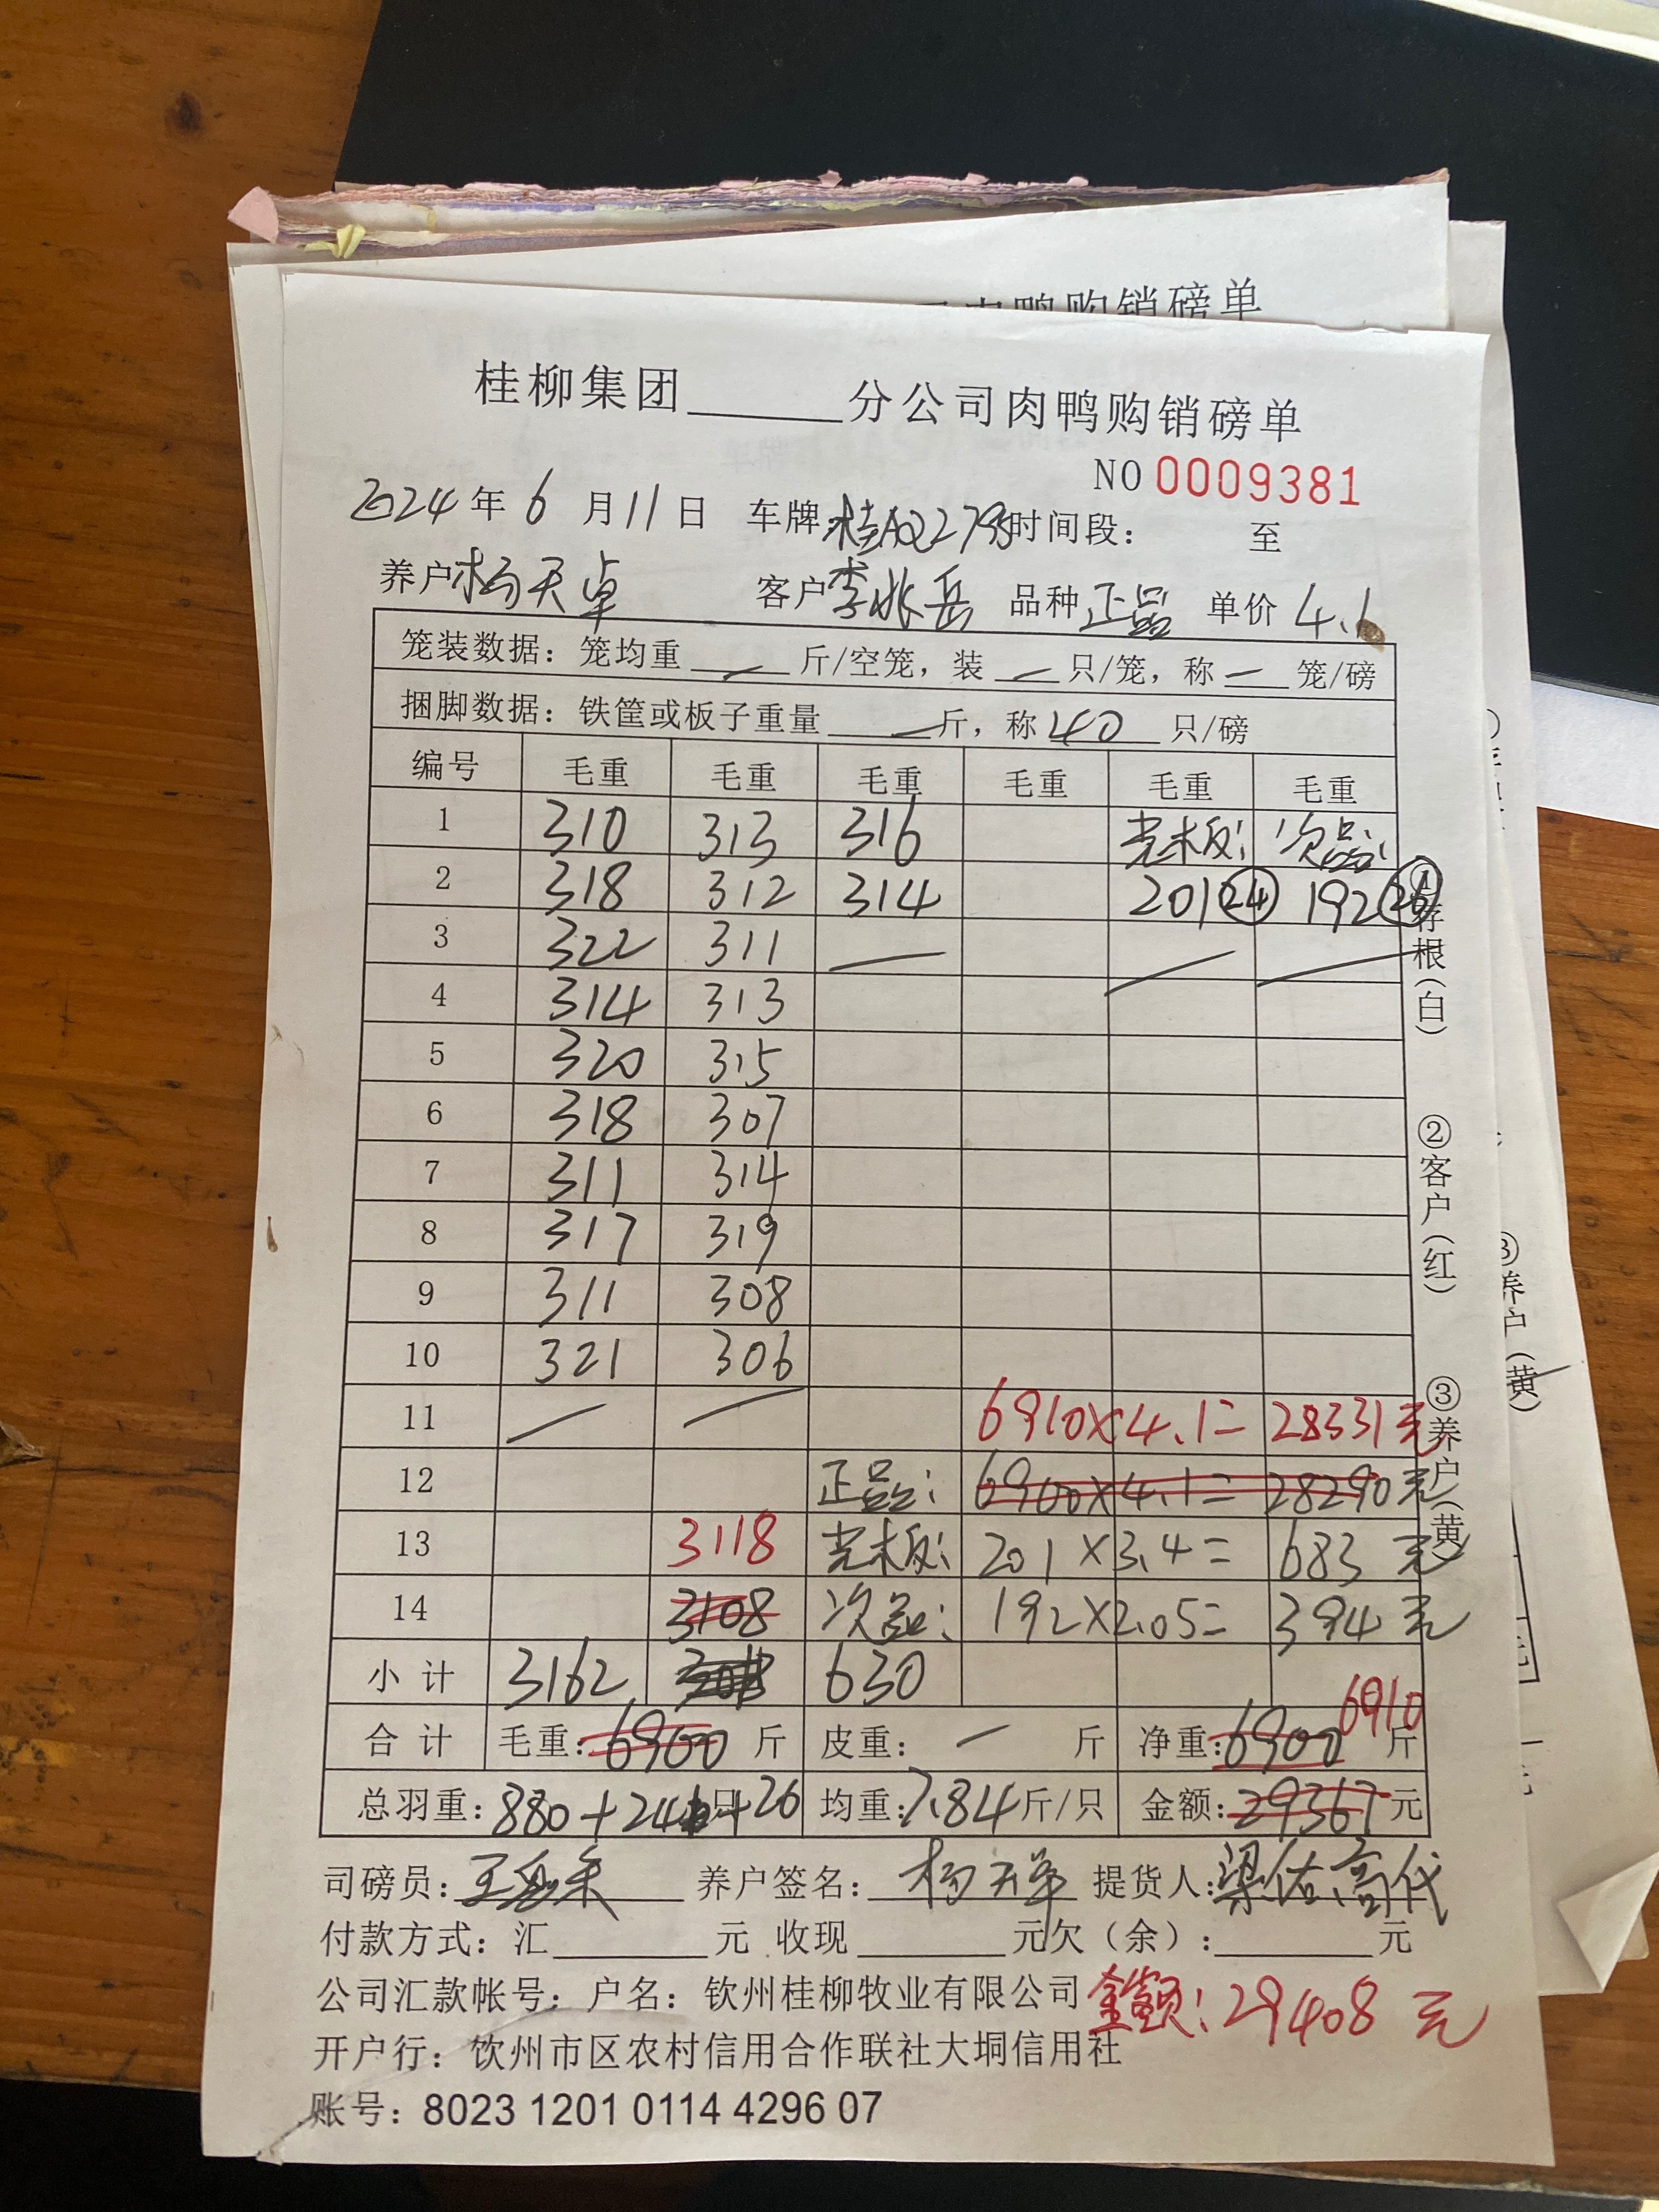 肉鸭购销磅单
桂柳集团______分公司肉鸭购销磅单
NO 0009381
2024年6月11日 车牌:桂AQ2795 时间段: 至
养户 杨天卓 客户 李兆岳 品种 正品 单价 4.1
笼装数据:笼均重 — 斤/空笼,装 — 只/笼,称 — 笼/磅
捆脚数据:铁筐或板子重量 — 斤,称 40 只/磅
编号 毛重 毛重 毛重 毛重 毛重 毛重
1 310 313 316 光板: 次品:
2 318 312 314 201 24 192 26
3 322 311 — — —
4 314 313
5 320 315
6 318 307
7 311 314
8 317 319
9 311 308
10 321 306
11 — — 6910×4.1= 28331元
12 正品: 6900×4.1= 28290元
13 3118 光板: 201×3.4= 683元
14 3108 次品: 192×2.05= 394元
小计 3162 630
6910
合计 毛重:6900 斤 皮重: — 斤 净重:6900 斤
总羽重:880+24+26 只 均重:7.84斤/只 金额:29367元
司磅员: 养户签名:杨天卓 提货人:梁佑高代
付款方式:汇______元 收现______元欠(余):______元
公司汇款帐号:户名:钦州桂柳牧业有限公司 金额:29408元
开户行:钦州市区农村信用合作联社大垌信用社
账号:8023 1201 0114 4296 07
①存根(白)
②客户(红)
③养户(黄)
③养户(黄)